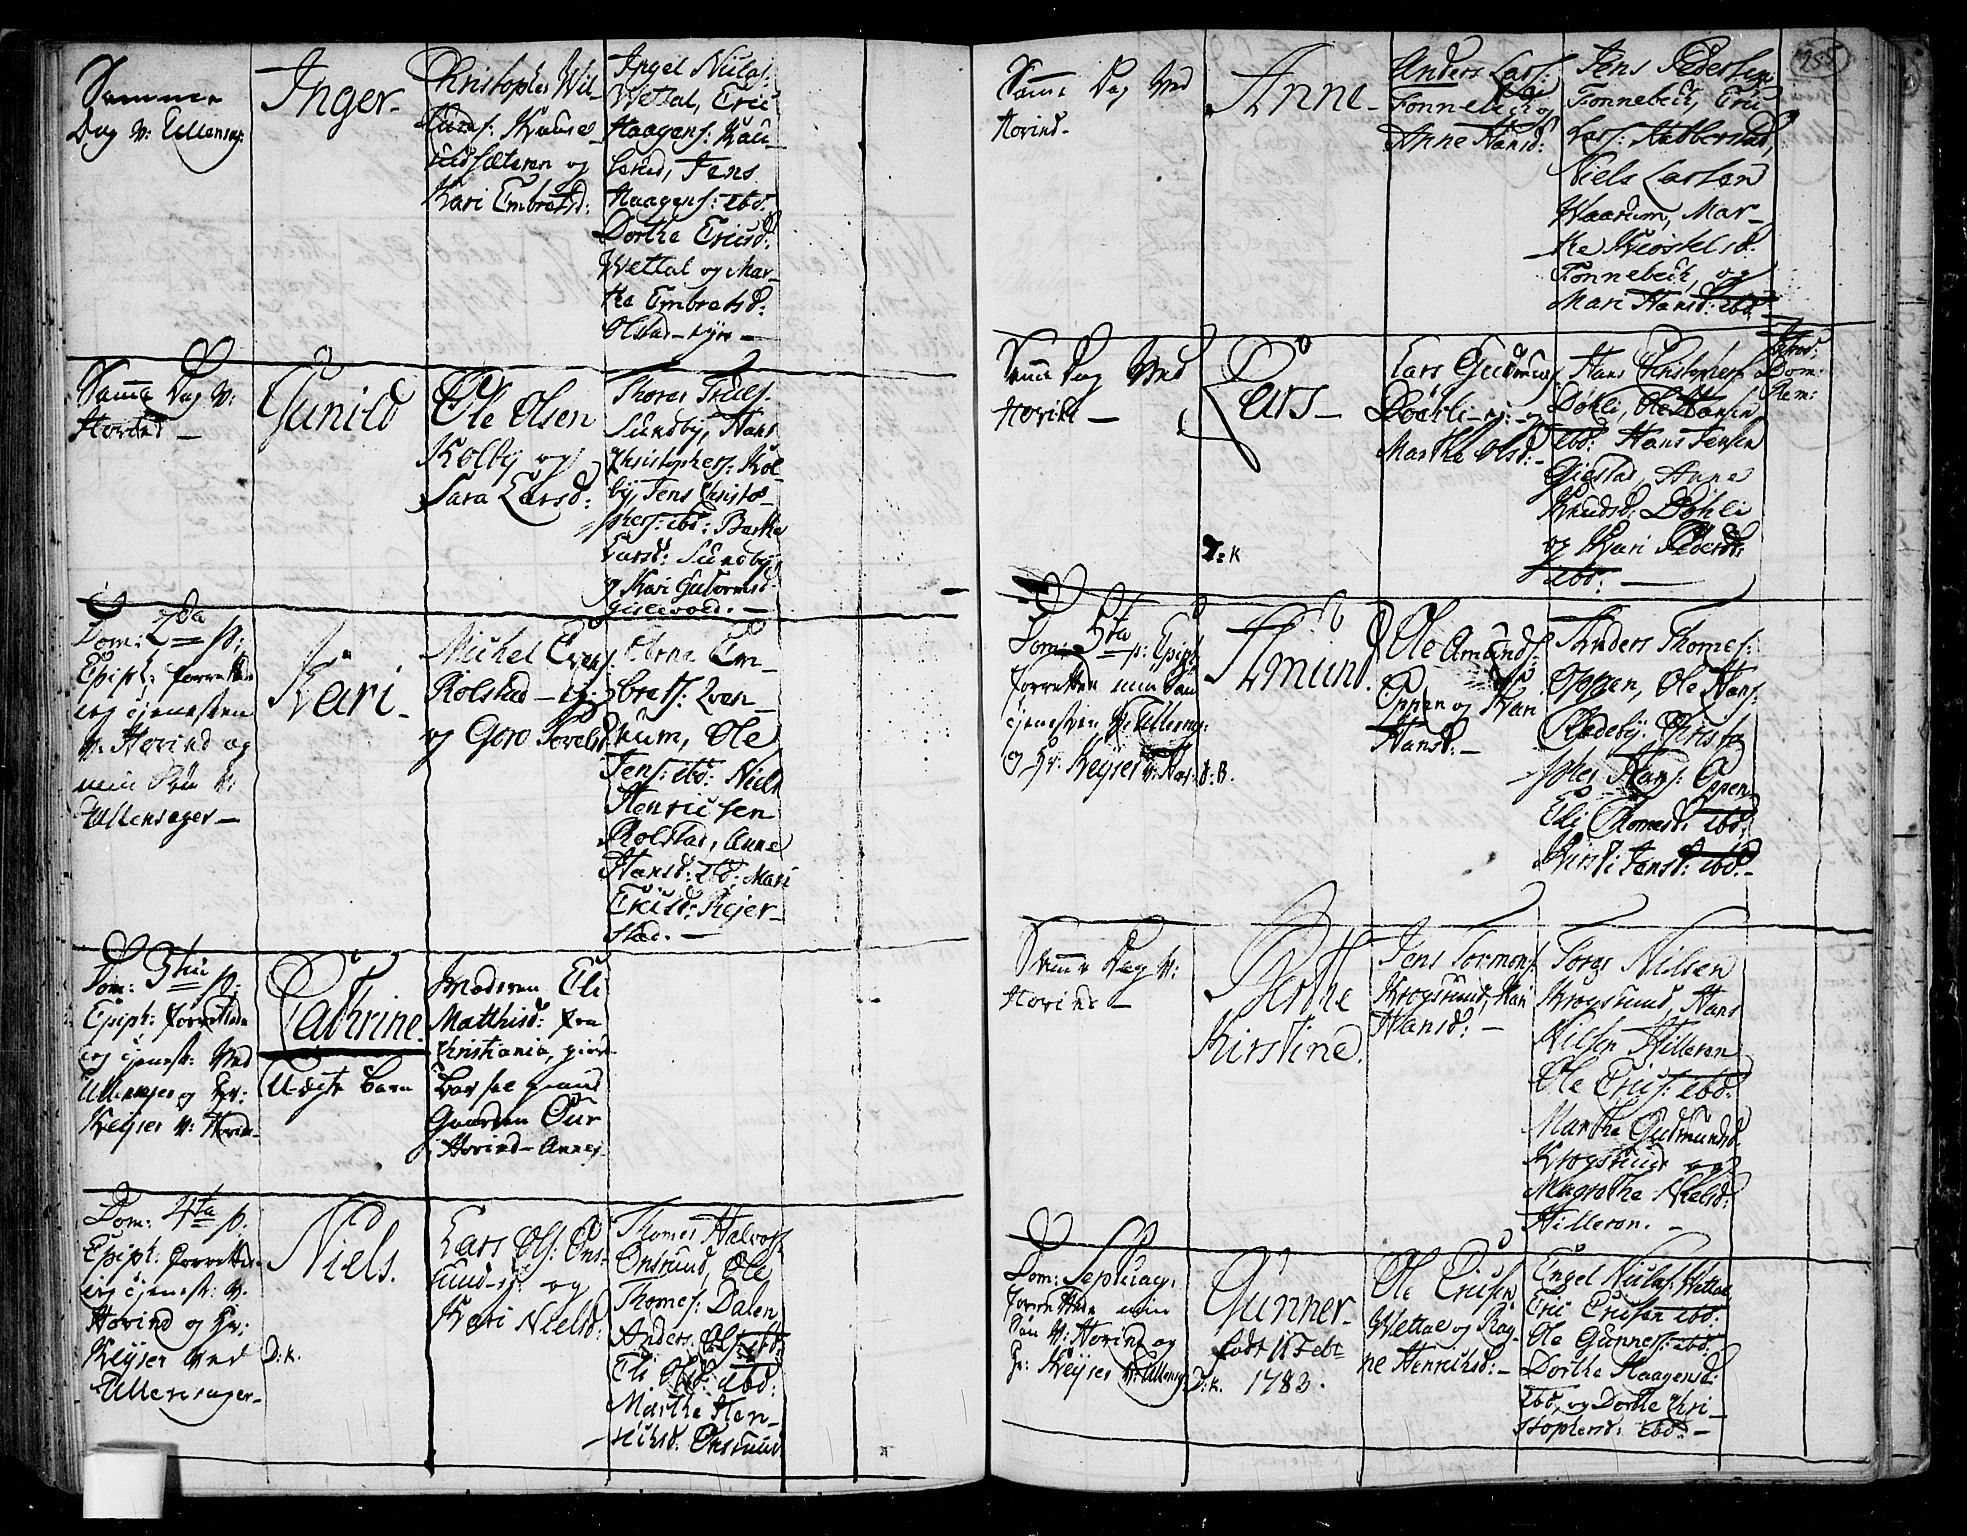 Samme
Dag v: Ullensag:
Inger-
Christopher Wil-
og
Kari Embretsd:
Ingel Niilss:
Wettal, Eric
Haagens:
Jens
Haagens: ibd.
Dorthe Ericsd:
Wettal og Mar-
the Embretsd:
Samme Dag v:
Hovind -
Gunild
Ole Olsen
Kolby og
Sara Larsd:
Thores Truls:
Sundby, Hans
Christophers: Kol-
by, Jens Christo-
phers: ibd: Berthe
Larsd: Sundby
og Kari Guttormsd:
Dom: 2da p:
Epiph: forrettede
jeg tjenesten
v: Hovind og
min Søn v:
Ullensager -
Kari -
Michel Evens:
Rolstad - ej:
og Goro Povelsd:
Arne Em-
brets:
Ole
Jens: ibd: Niels
Henricsen
Rolstad, Anne
Hansd: ibd: Mari
Ericsd: Rejer-
stad. -
Dom: 3tiæ p:
Epiph: forrettede
jeg tjenest: ved
Ullensager og Hr:
Keyser v: Hovind-
Cathrine.
Uægte Barn
Moderen Eli
Matthisd: fra
Christiania, giorde
Barsel paa
Gaarden Our
Hovind-Annex
Dom: 4ta p:
Epiph: forrettede
jeg tjenest: v:
Hovind og Hr:
Keyser ved
Ullensager-
D: K.
Niels.
Lars Ols: Ons-
rud-ej: og
Kari Nielsd:
Thomes Halvors:
Onsrud, Ole
Thomes: Dalen
Anders Ols: ibd:
Eli Olsd: ibd:
Marthe Hen-
richsd: Onsrud
155
Samme Dag ved
Hovind-
Anne-
Anders Lars:
Tonnebeck og
Anne Hansd:
Jens Pedersen
Tonnebeck, Eric
Lars:
Niels Larsen
Waarum, Mar-
the
Tonnebeck, og
Mari Hansd: ibd.
Samme Dag ved
Hovind -
Lars -
Lars Gudmunds:
Døhli - ej: og
Marthe Olsd: -
Hans Christophers:
Døhli, Ole Hansen
ibd: Hans Jensen
Gjestad, Anne
Knudsd: Døhli
og Kari Pedersd:
ibd: -
Introd:
Dom:
Rem:
D: K
Dom: 5ta p: Epiph:
forrettede min Søn
tjenesten v: Ullensag:
og Hr: Keyser v: Hov:
D: B.
Amund.
Ole Amunds:
Oppen og Kari
Hansd: -
Anders Thomes:
Oppen, Ole Hans:
Rødeby: Christo-
pher Hans: Oppen
Eli Thomesd: ibd:
Kirsti Jensd: ibd: -
Samme Dag v:
Hovind -
Berthe
Kirstine.
Jens Tormons:
Krogsrud, Kari
Hansd: -
Tores Nilsen
Krogsrud, Hans
Nilsen Hilleren
Ole Erics: ibd:
Marthe Gudmundsd:
Krogsrud og
Magrethe Nielsd:
Hilleren. -
Dom: Septuag:
forrettede min
Søn v: Hovind og
Hr: Keyser v: Ullensag:
D: K.
Gunner -
født 11 Febr
1783.
Ole Ericsen
Wettal og Rag-
ne Henrichsd: -
Engel Niels: Wettal
Eric Ericsen ibd:
Ole Gunners: ibd:
Dorthe Haagensd:
ibd, og Dorthe Chri-
stophersd: ibd: -